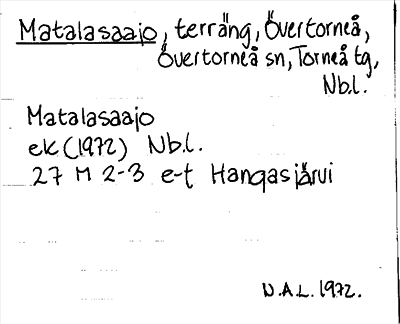 Matalasaajo, terräng, Övertorneå,
Övertorneå sn, Torneå tg,
Nb.l.
Matalasaajo
ek (1972) Nb.l.
27 M 2-3 e-t Hangasjärvi
N.A.L. 1972.